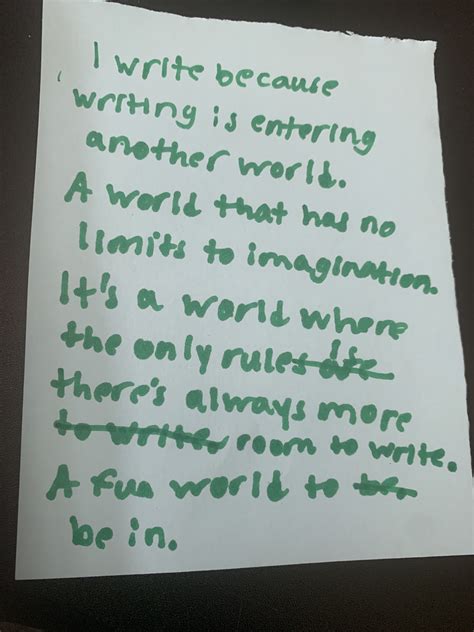 I write because
writing is entering
another world.
A world that has no
limits to imagination.
It's a world where
the only rule is
there's always more
to write. room to write.
A fun world to be.
be in.